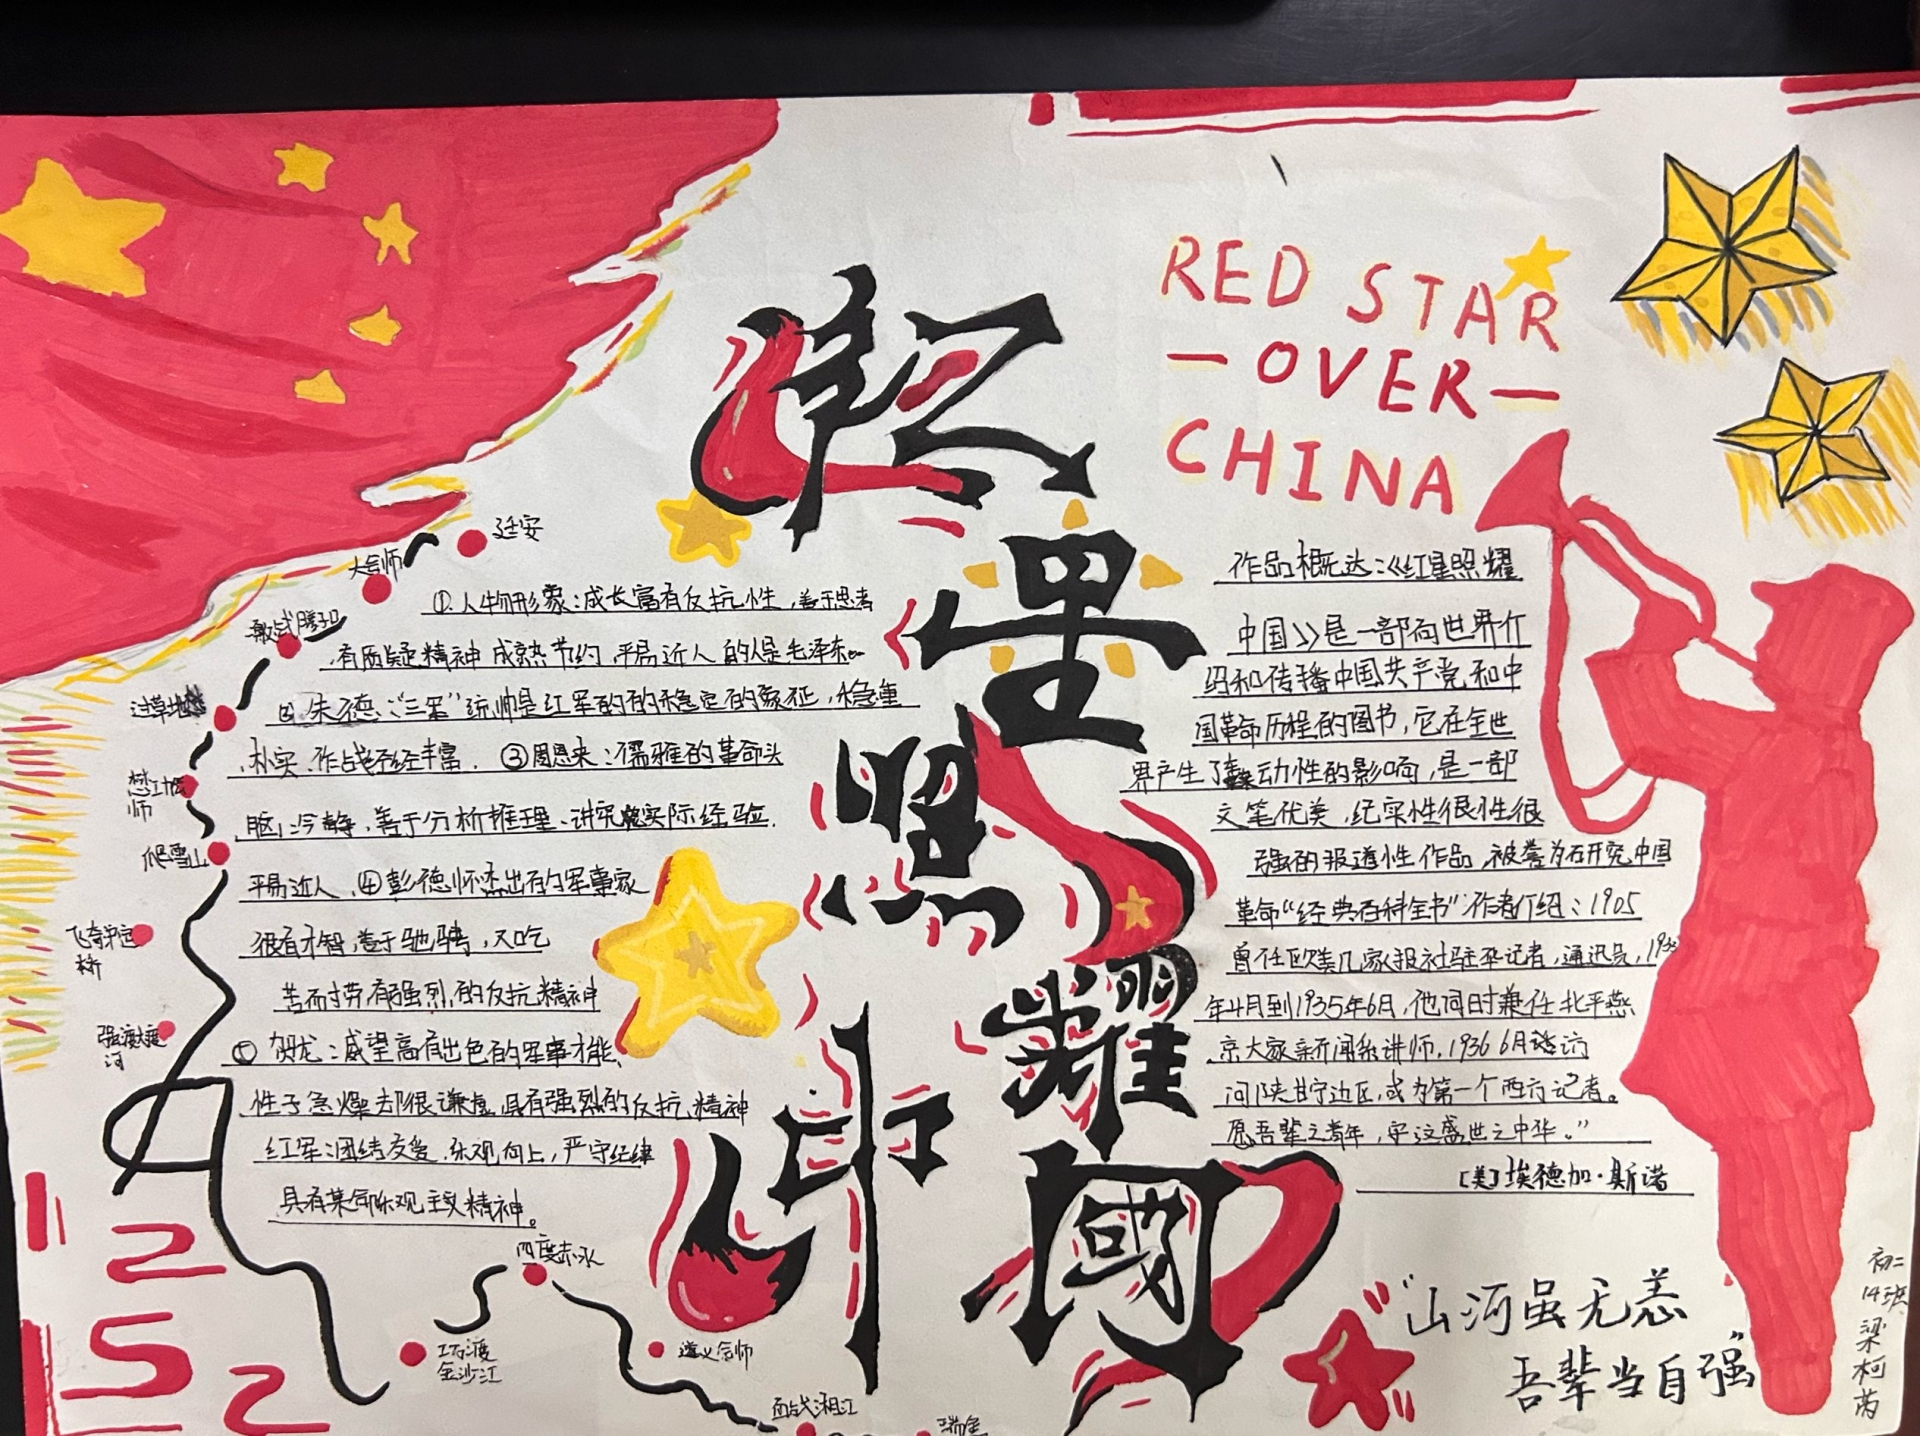 RED STAR
—OVER—
CHINA
红星照耀中國
延安
大会师
过草地
爬雪山
四度赤水
巧渡
金沙江
遵义会师
血战湘江
瑞金
252
①.人物形象:成长富有反抗性,善于思考
有质疑精神 成熟节约 平易近人 的人是毛泽东
朴实.作战经经丰富. ③周恩来:儒雅的革命头
脑冷静.善于分析推理.讲究实际经验.
平易近人.④彭德怀杰出的军事家
很有才智,善于驰骋,又吃
苦而才劳.有强烈.的反抗精神
⑤ 贺龙:威望高有出色的军事才能.
性子急燥却很谦虚.具有强烈的反抗.精神
红军:团结友爱.乐观向上,严守纪律
具有革命乐观主义精神。
作品概述:《红星照耀
中国》是一部向世界介
绍和传播中国共产党和中
国革命历程的图书,它在全世
界产生了轰动性的影响,是一部
文笔优美,纪实性很性很
强的报道性作品,被誉为研究中国
革命“经典百科全书”作者介绍:1905
曾任欧美几家报社驻华记者,通讯员,
年4月到1935年6月,他同时兼任北平燕
京大家新闻系讲师.1936 6月
河陕甘宁边区,成为第一个西方记者。
愿吾辈之青年,守这盛世之中华。”
[美]埃德加·斯诺
“山河虽无恙
吾辈当自强”
初二
14班
梁
柯
芮